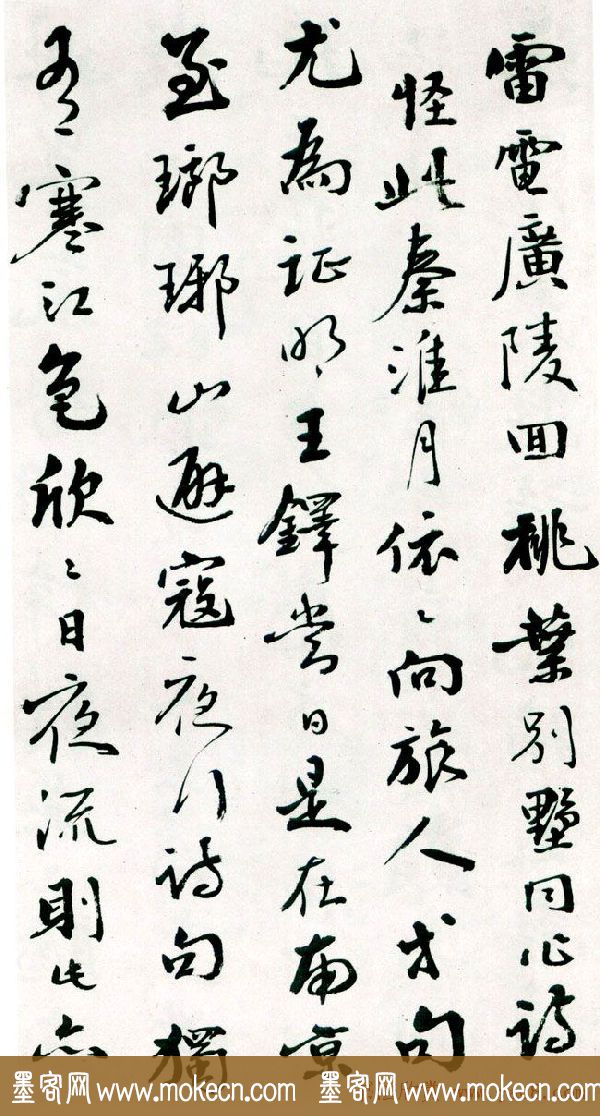 雷電廣陵回桃葉別墅同作詩
怪此秦淮月依〻向旅人才句
尤為証明王鐸當日是在南京
至瑯琊山避寇夜行詩句獨
有寒江色欣〻日夜流則此亦
墨客网 www.mokecn.com 墨客网 www.mokecn.com